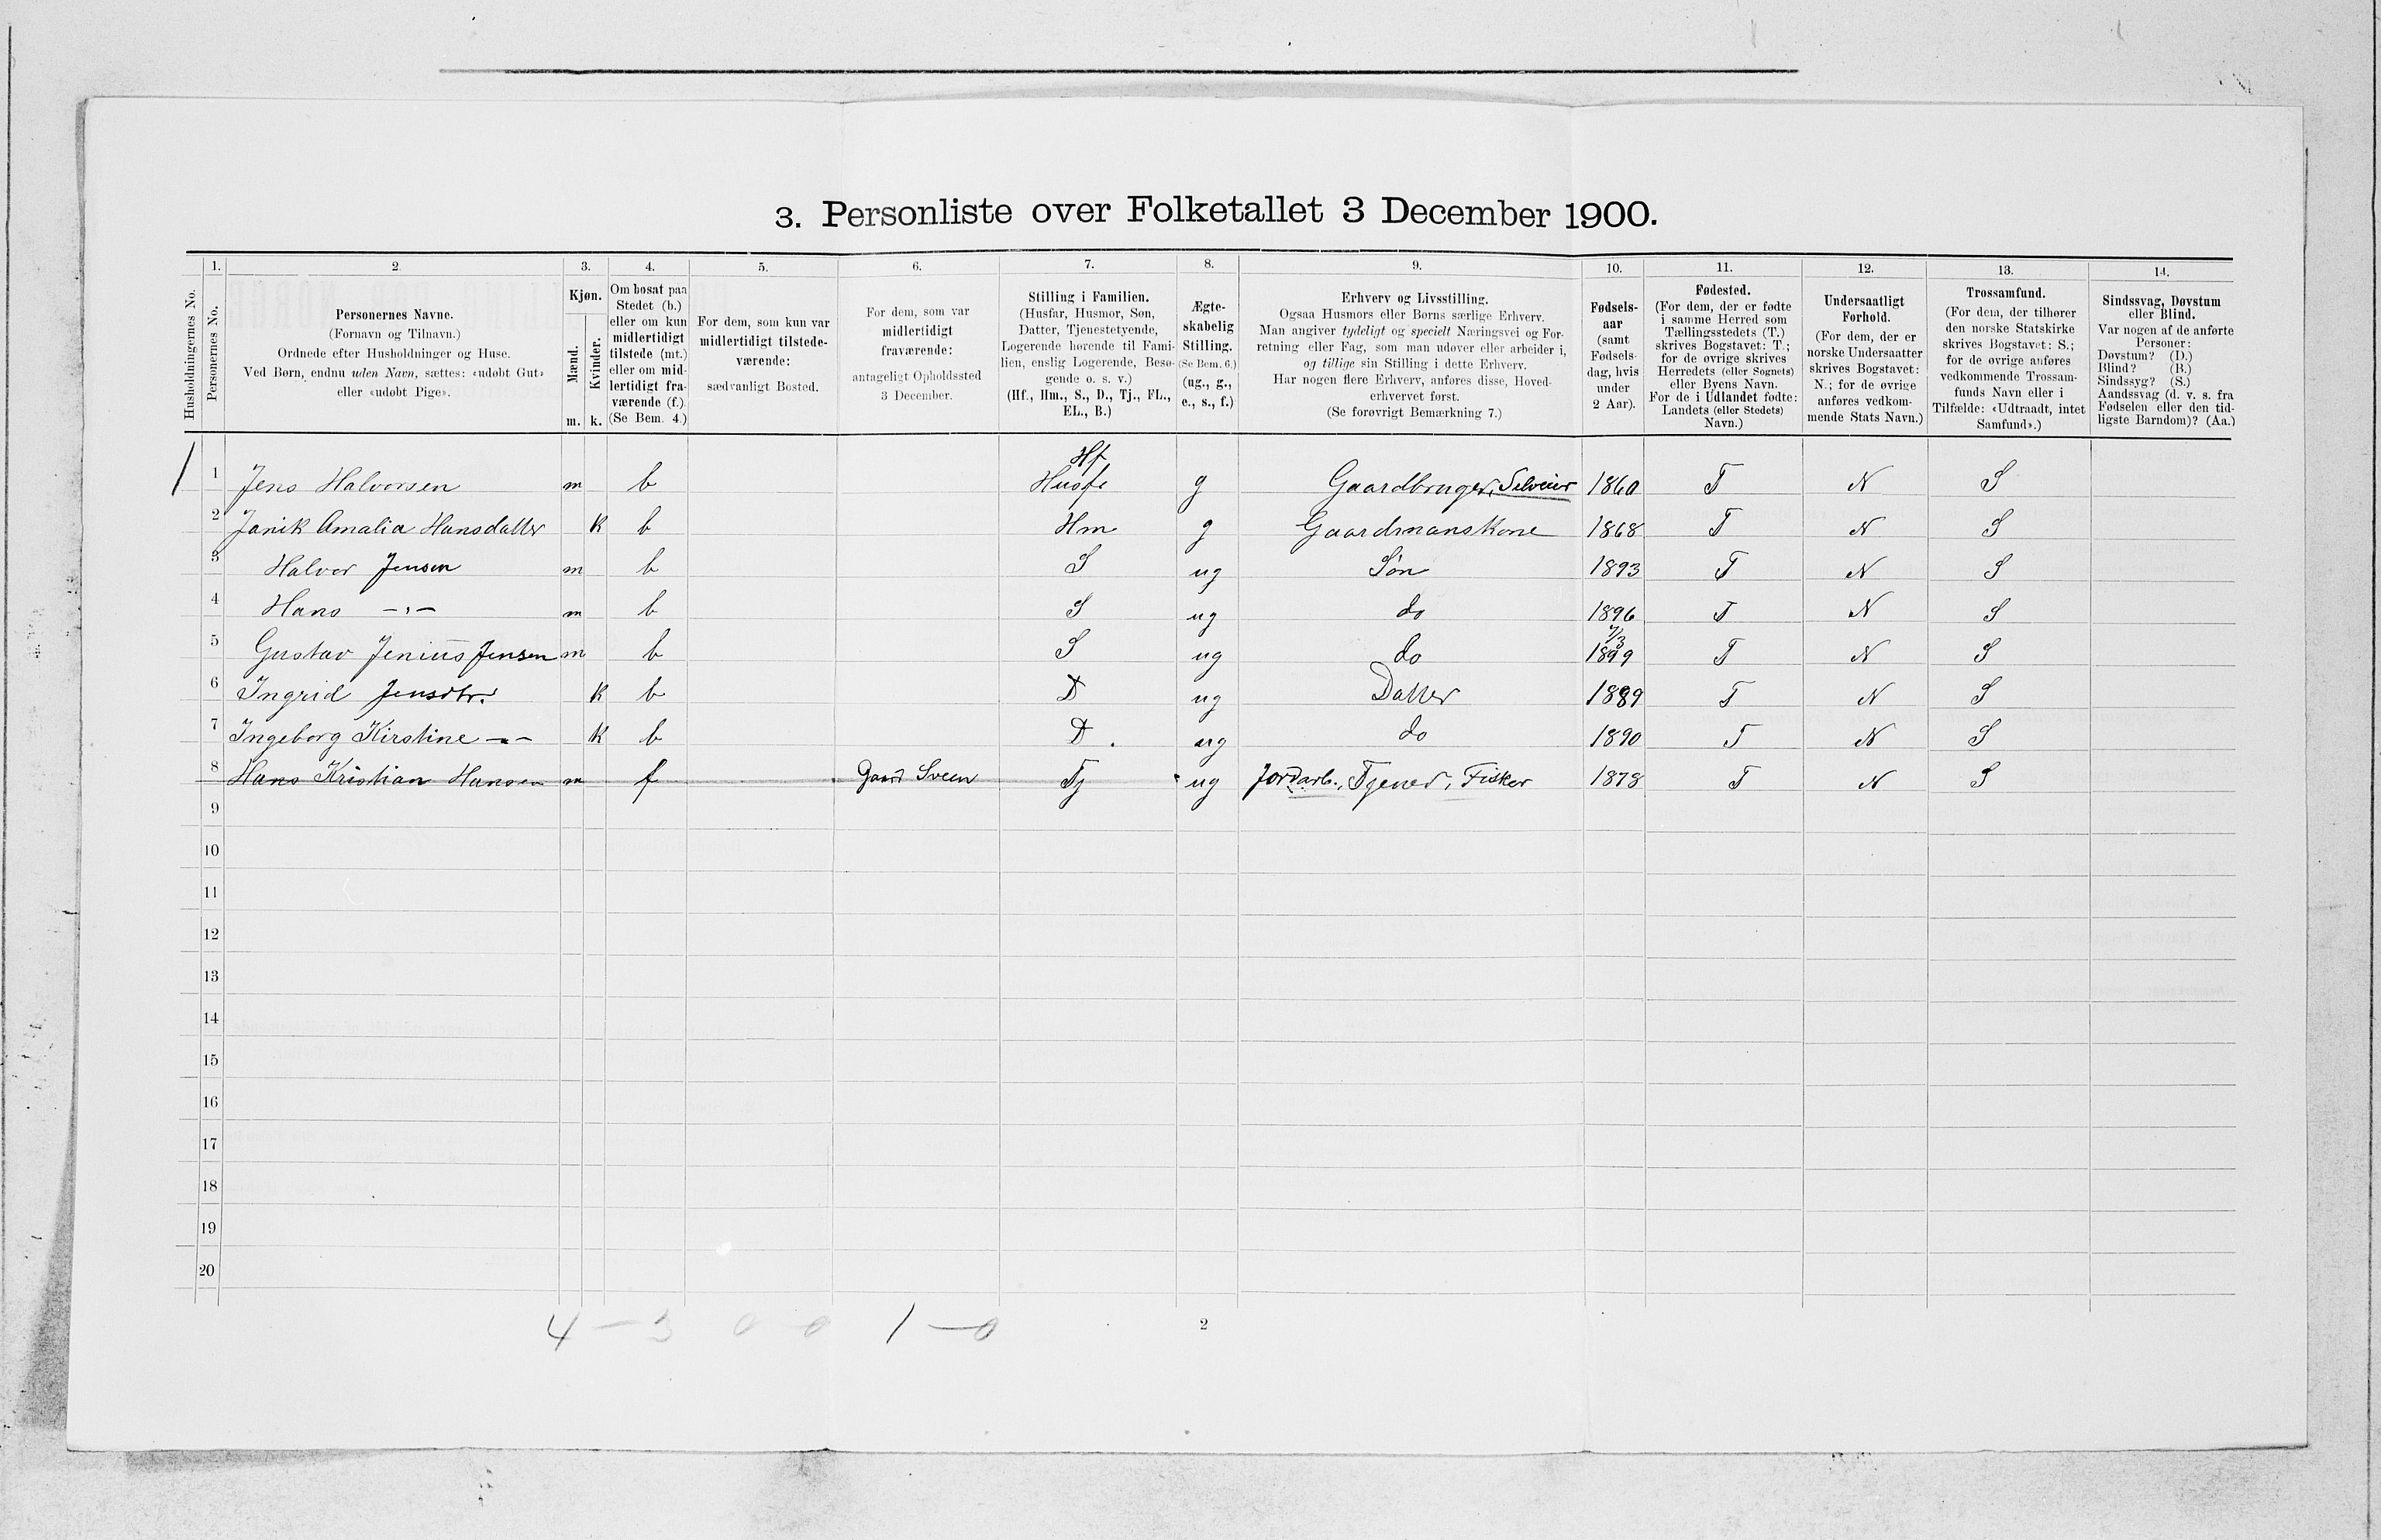 3. Personliste over Folketallet 3 December 1900.
1. 2. 3. 4. 5. 6. 7. 8. 9. 10. 11. 12. 13. 14.
Husholdningernes No.
Personernes No.
Personernes Navne.
(Fornavn og Tilnavn.)
Ordnede efter Husholdninger og Huse.
Ved Børn, endnu uden Navn, sættes: «udøbt Gut»
eller «udøbt Pige».
Kjøn.
Mænd.
Kvinder.
m. k.
Om bosat paa
Stedet (b.)
eller om kun
midlertidigt
tilstede (mt.)
eller om mid-
lertidigt fra-
værende (f.)
(Se Bem. 4.)
For dem, som kun var
midlertidigt tilstede-
værende:
sædvanligt Bosted.
For dem, som var
midlertidigt
fraværende:
antageligt Opholdssted
3 December.
Stilling i Familien.
(Husfar, Husmor, Søn,
Datter, Tjenestetyende,
Logerende hørende til Fami-
lien, enslig Logerende, Besø-
gende o. s. v.)
(Hf., Hm., S., D., Tj., FL.,
EL., B.)
Ægte-
skabelig
Stilling.
(Se Bem. 6.)
(ug., g.,
e., s., f.)
Erhverv og Livsstilling.
Ogsaa Husmors eller Børns særlige Erhverv.
Man angiver tydeligt og specielt Næringsvei og For-
retning eller Fag, som man udøver eller arbeider i,
og tillige sin Stilling i dette Erhverv.
Har nogen flere Erhverv, anføres disse, Hoved-
erhvervet først.
(Se forøvrigt Bemærkning 7.)
Fødsels-
aar
(samt
Fødsels-
dag, hvis
under
2 Aar).
Fødested.
(For dem, der er fødte
i samme Herred som
Tællingsstedets (T.)
skrives Bogstavet: T.;
for de øvrige skrives
Herredets (eller Sognets)
eller Byens Navn.
For de i Udlandet fødte:
Landets (eller Stedets)
Navn.)
Undersaatligt
Forhold.
(For dem, der er
norske Undersaatter
skrives Bogstavet:
N.; for de øvrige
anføres vedkom-
mende Stats Navn.)
Trossamfund.
(For dem, der tilhører
den norske Statskirke
skrives Bogstavet: S.;
for de øvrige anføres
vedkommende Trossam-
funds Navn eller i
Tilfælde: «Udtraadt, intet
Samfund».)
Sindssvag, Døvstum
eller Blind.
Var nogen af de anførte
Personer:
Døvstum? (D.)
Blind? (B.)
Sindssyg? (S.)
Aandssvag (d. v. s. fra
Fødselen eller den tid-
ligste Barndom)? (Aa.)
Hf
1 1 Jens Halvorsen m b Husf g Gaardbruger, Selveier 1860 T N S
2 Janik Amalia Hansdatter k b Hm g Gaardmanskone 1868 T N S
3 Halvor Jensen m b S ug Søn 1893 T N S
4 Hans -"- m b S ug do 1896 T N S
7/3
5 Gustav Jenius Jensen m b S ug do 1899 T N S
6 Ingrid Jensdtr. k b D ug Datter 1889 T N S
7 Ingeborg Kirstine -"- k b D. ug do 1890 T N S
8 Hans Kristian Hansen m f Gaard Sveen Tj ug Jordarb., Tjener, Fisker 1878 T N S
9
10
11
12
13
14
15
16
17
18
19
20
4 - 3 0 - 0 1 - 0
2